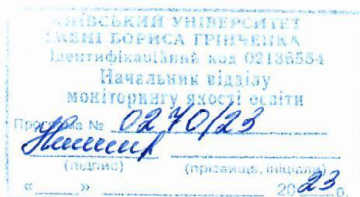 КИЇВСЬКИЙ УНІВЕРСИТЕТ
ІМЕНІ БОРИСА ГРІНЧЕНКА
Ідентифікаційний код 02136554
Начальник відділу
моніторингу якості освіти
Програма № 0270/23
(підпис) (прізвище, ініціали)
« » 2023р.